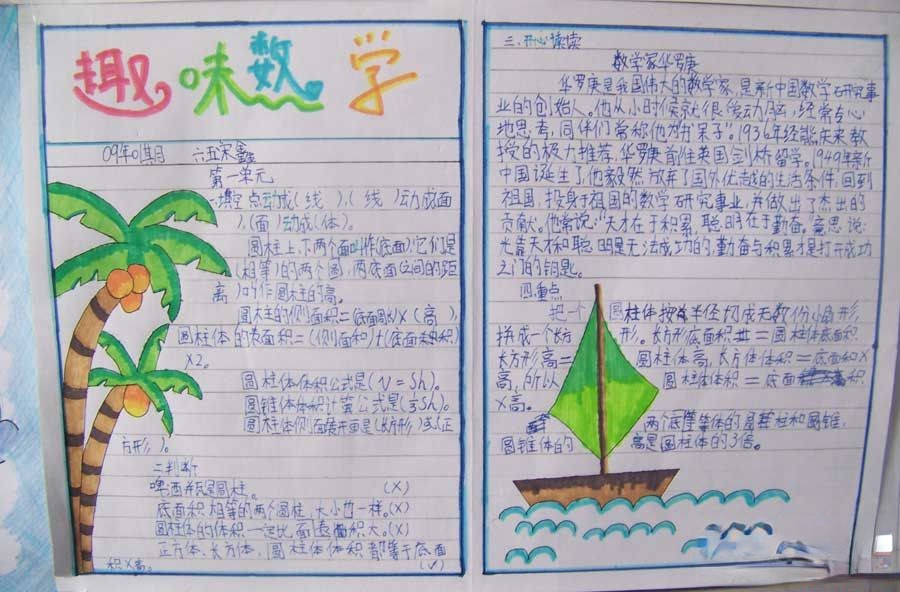 趣味数学
09年01期 六五宋鑫
第一单元
一、填空 点动成(线),(线)动成面
),(面)动成(体)。
圆柱上、下两个面叫作(底面),它们是
(相等)的两个圆,两底面之间的距
离)叫作圆柱的高。
圆柱的侧面积=(底面周长)×(高),
圆柱体的表面积=(侧面积)+(底面积)
×2。
圆柱体体积公式是(V=Sh)。
圆锥体体积计算公式是(⅓Sh)。
圆柱体侧面展开面是(长方形)或(正
方形)。
二、判断
啤酒瓶是圆柱。 (×)
底面积相等的两个圆柱,大小也一样。(×)
圆柱体的体积一定比表面积大。(×)
正方体、长方体、圆柱体体积都等于底面
积×高。 (√)
三、开心读读
数学家华罗庚
华罗庚是我国伟大的数学家,是新中国数学研究事
业的创始人。他从小时候就很爱动脑,经常专心
地思考,同伴们常称他为“呆子”。1936年经熊庆来教
授的极力推荐,华罗庚前往英国剑桥留学。1949年新
中国诞生了,他毅然放弃了国外优越的生活条件,回到
祖国,投身于祖国的数学研究事业,并做出了杰出的
贡献。他常说:“天才在于积累,聪明在于勤奋。”意思说:
光靠天才和聪明是无法成功的,勤奋与积累才是打开成功
之门的钥匙。
四、重点
把一个圆柱体按半径切成无数份小扇形,
拼成一个长方形。长方形底面积=圆柱体底面积,
长方形高=圆柱体高,长方体体积=底面积×
高,所以圆柱体积=底面积
×高。
两个底等体的圆柱和圆锥,
圆锥体的高是圆柱体的3倍。